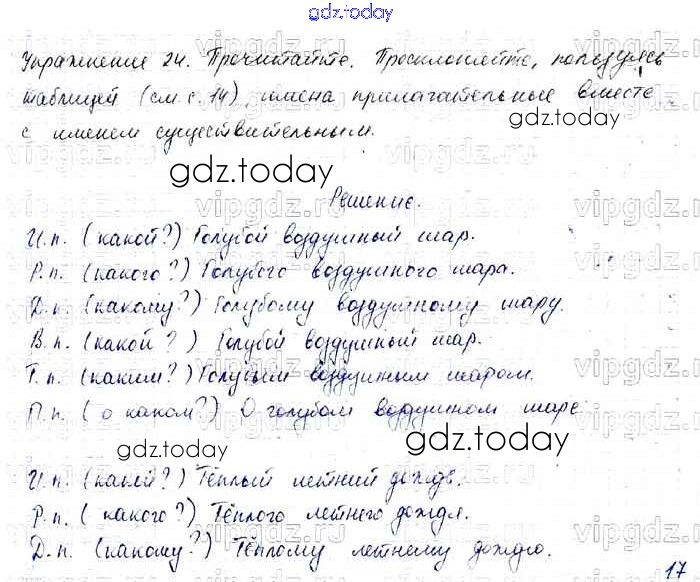 gdz.today
Упражнение 24. Прочитайте. Просклоняйте, пользуясь
таблицей (см с. 14), имена прилагательные вместе
с именем существительным.
gdz.today
gdz.today
Решение.
И.п. (какой?) Голубой воздушный шар.
Р.п. (какого?) Голубого воздушного шара.
Д.п. (какому?) Голубому воздушному шару.
В.п. (какой?) Голубой воздушный шар.
Т.п. (каким?) Голубым воздушным шаром.
П.п. (о каком?) О голубом воздушном шаре
gdz.today
gdz.today
И.п. (какой?) Тёплый летний дождь.
Р.п. (какого?) Тёплого летнего дождя.
Д.п. (какому?) Тёплому летнему дождю.
17